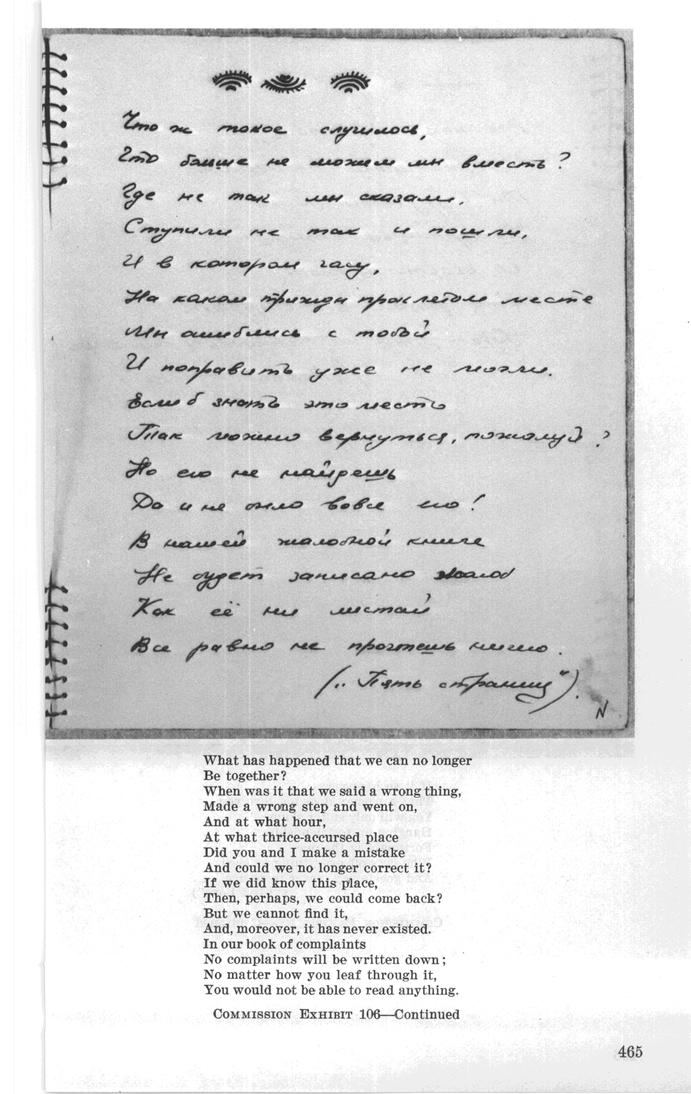 Что ж такое случилось,
Что больше не можем мы вместь?
Где не так мы сказали,
Ступили не так и пошли,
И в котором часу,
На каком трижды проклетом месте
Мы ошиблись с тобой
И поправить уже не могли.
Если б знать это место
Так можно вернуться, пожалуй?
Но его не найдешь
Да и не было вовсе его!
В нашей жалобной книге
Не будет записано жалоб
Как её ни листай
Все равно не прочтешь ничего.
(„Пять страниц").
N
What has happened that we can no longer
Be together?
When was it that we said a wrong thing,
Made a wrong step and went on,
And at what hour,
At what thrice-accursed place
Did you and I make a mistake
And could we no longer correct it?
If we did know this place,
Then, perhaps, we could come back?
But we cannot find it,
And, moreover, it has never existed.
In our book of complaints
No complaints will be written down;
No matter how you leaf through it,
You would not be able to read anything.
COMMISSION EXHIBIT 106—Continued
465